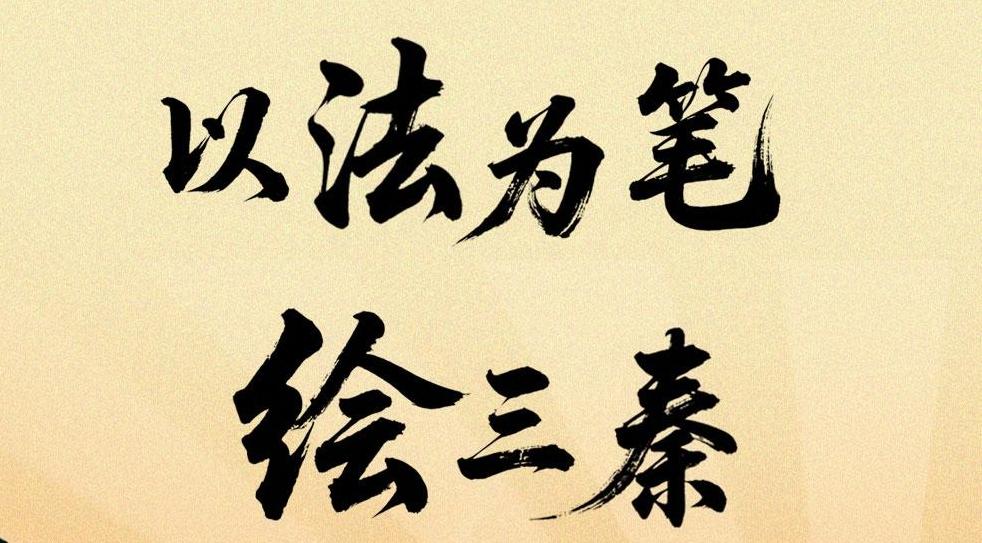 以法为笔
绘三秦